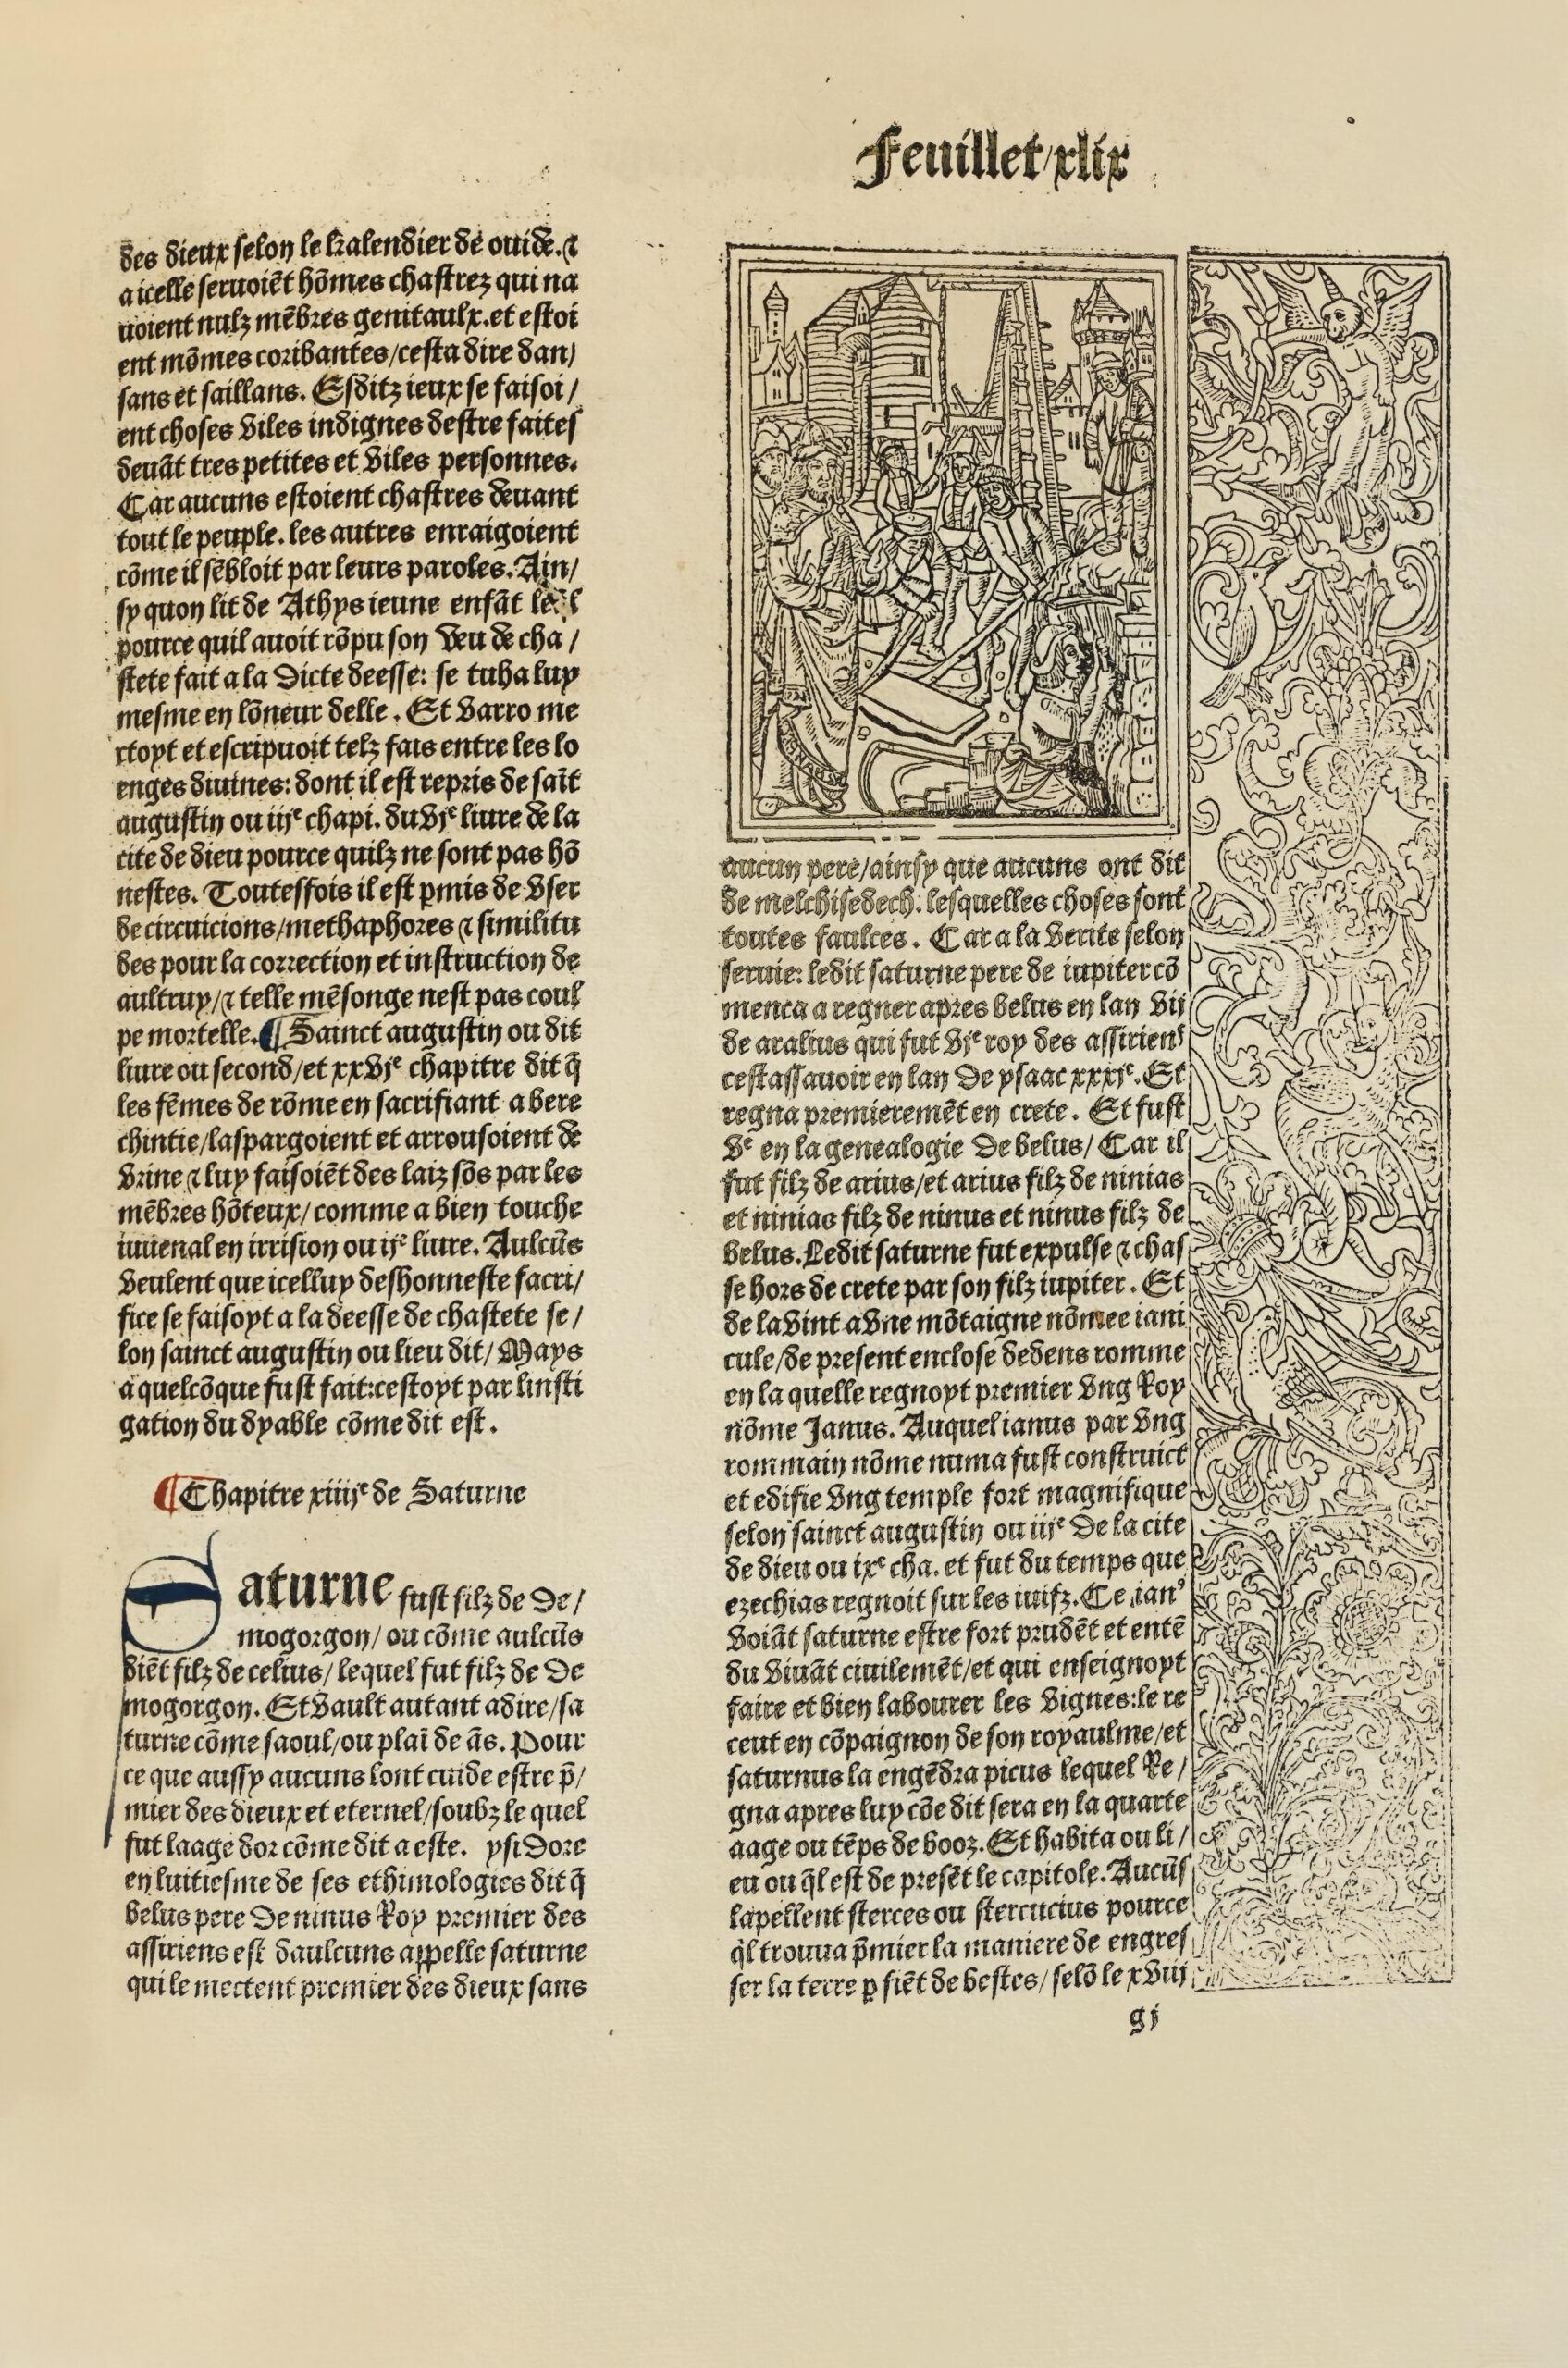 Feuillet/xlix
des dieux selon le kalendier de ouide. ⁊
a icelle seruoiẽt hõmes chastrez qui na
uoient nulz mẽbres genitaulx.et estoi
ent mõmes coribantes/cesta dire dan/
sans et saillans. Esditz ieux se faisoi/
ent choses viles indignes destre faites
deuãt tres petites et viles personnes.
Car aucuns estoient chastres deuant
tout le peuple. les autres enraigoient
cõme il sẽbloit par leurs paroles. Ain/
sy quon lit de Athys ieune enfãt
pource quil auoit rõpu son veu de cha/
stete fait a la dicte deesse: se tuha luy
mesme en lõneur delle. Et varro me
ctoyt et escripuoit telz fais entre les lo
enges diuines: dont il est repris de saĩt
augustin ou iijᵉ chapi. du vjᵉ liure de la
cite de dieu pource quilz ne sont pas hõ
nestes. Toutesfois il est p̃mis de vser
de circuicions/methaphores ⁊ similitu
des pour la correction et instruction de
aultruy/⁊ telle mẽsonge nest pas coul
pe mortelle. ¶ Sainct augustin ou dit
liure ou second/et xxvjᵉ chapitre dit q̃
les fẽmes de rõme en sacrifiant a bere
chintie/laspargoient et arrousoient de
vrine ⁊ luy faisoiẽt des laiz sõs par les
mẽbres hõteux/comme a bien touche
iuuenal en irrision ou ijᵉ liure. Aulcũs
veulent que icelluy deshonneste sacri/
fice se faisoyt a la deesse de chastete se/
lon sainct augustin ou lieu dit/Mays
a quelcõque fust fait:cestoyt par linsti
gation du dyable cõme dit est.
¶ Chapitre xiiijᵉ de Saturne
Saturne fust filz de De/
mogorgon/ou cõme aulcũs
diẽt filz de celius/lequel fut filz de De
mogorgon. Et vault autant adire/sa
turne cõme saoul/ou plaĩ de ãs. Pour
ce que aussy aucuns lont cuide estre p̃/
mier des dieux et eternel/soubz le quel
fut laage dor cõme dit a este. ysidore
en luitiesme de ses ethimologies dit q̃
belus pere de ninus Roy premier des
assiriens est daulcuns appelle saturne
qui le mectent premier des dieux sans
aucun pere/ainsy que aucuns ont dit
de melchisedech. lesquelles choses sont
toutes faulces. Car a la verite selon
seruie: ledit saturne pere de iupiter cõ
menca a regner apres belus en lan vij
de aralius qui fut vjᵉ roy des assiriens
cestassauoir en lan de ysaac xxxjᵉ. Et
regna premieremẽt en crete. Et fust
vᵉ en la genealogie de belus/Car il
fut filz de arius/et arius filz de ninias
et ninias filz de ninus et ninus filz de
belus. Ledit saturne fut expulse ⁊ chas
se hors de crete par son filz iupiter. Et
de la vint a vne mõtaigne nõmee iani
cule/de present enclose dedens romme
en la quelle regnoyt premier vng Roy
nõme Janus. Auquel ianus par vng
rommain nõme numa fust construict
et edifie vng temple fort magnifique
selon sainct augustin ou iijᵉ de la cite
de dieu ou ixᵉ cha. et fut du temps que
ezechias regnoit sur les iuifz. Ce ianꝰ
voiãt saturne estre fort prudẽt et entẽ
du viuãt ciuilemẽt/et qui enseignoyt
faire et bien labourer les vignes:le re
ceut en cõpaignon de son royaulme/et
saturnus la engẽdra picus lequel Re/
gna apres luy cõe dit sera en la quarte
aage ou tẽps de booz. Et habita ou li/
eu ou q̃l est de presẽt le capitole. Aucũs
lapellent sterces ou stercucius pource
q̃l trouua p̃mier la maniere de engres
ser la terre ꝑ fiẽt de bestes/selõ le xviij
gi